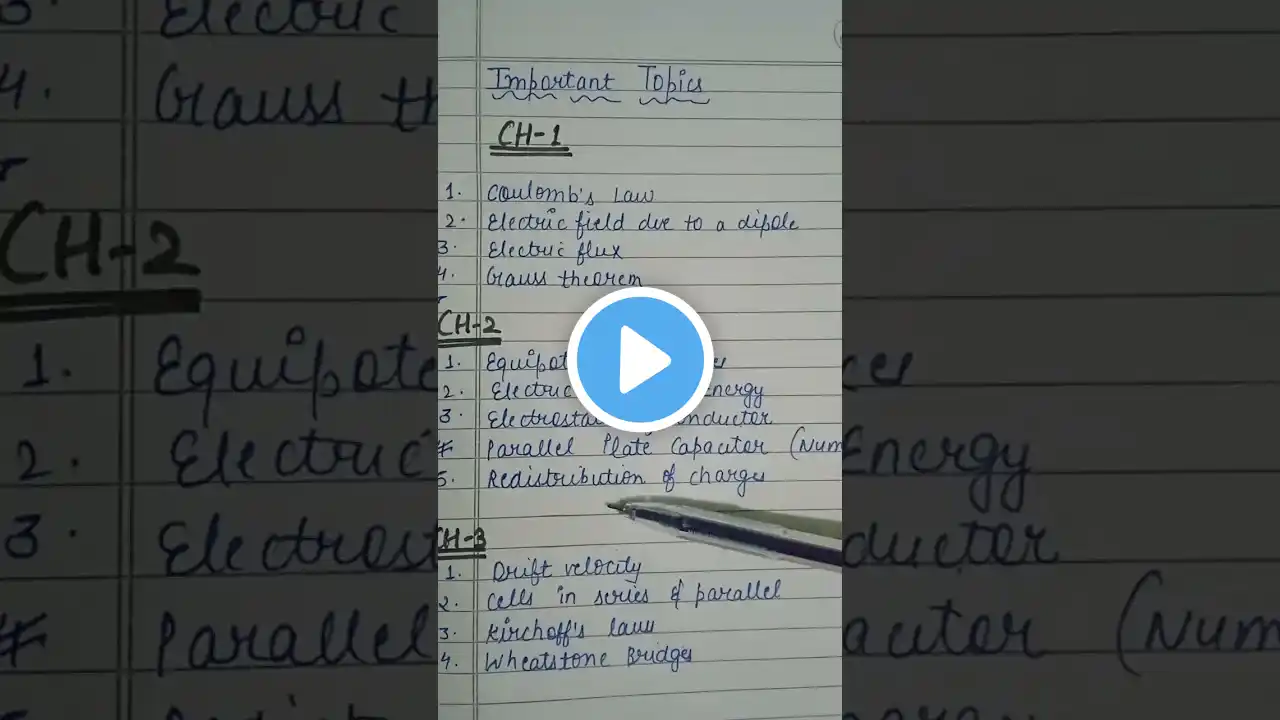 Important Topics
CH-1
1. Coulomb's Law
2. Electric field due to a dipole
3. Electric flux
4. Gauss theorem
CH-2
1.
2. Electric Energy
3.
Parallel Plate Capacitor (Num
5. Redistribution of charges
CH-3
1. Drift velocity
2. Cells in series & parallel
3. Kirchoff's laws
4. Wheatstone Bridges